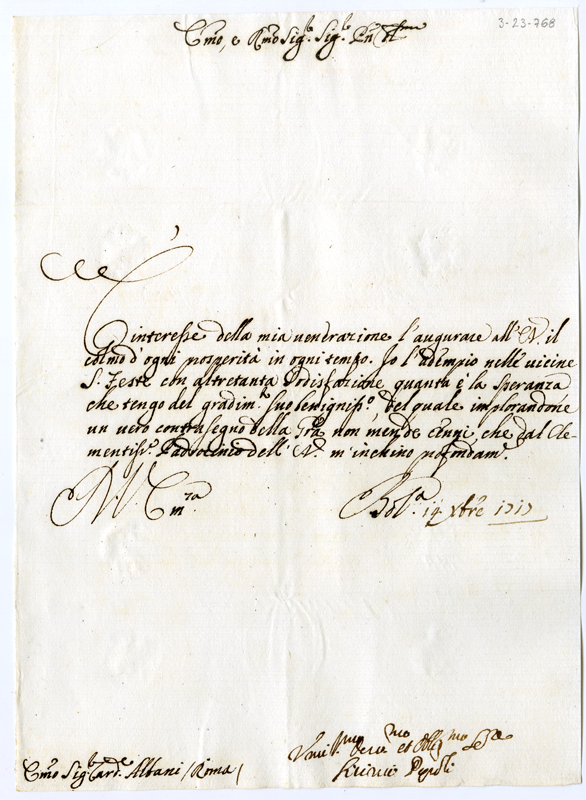 3-23-768
Emo, e Rmo Sig.r Sig.r Pn Clmo
È interesse della mia venerazione l'augurare all'E.V. il
colmo d'ogni prosperità in ogni tempo. Io l'adempio nelle vicine
S. Feste con altretanta sodisfazione quanta è la speranza
che tengo del gradim.to suo benigniss.o, del quale implorandone
un vero contrasegno della Sua non men de cenni, che dal Cle-
mentiss.o Padrocineo dell'E.V. m'inchino profondam.te
D. V. Em.za
Bol.a 14 Xbre 1717
Vmiliss.mo Dev.mo et Obl.mo Ser.e
Pepoli
Emo Sig.r Card.e Albani / Roma /